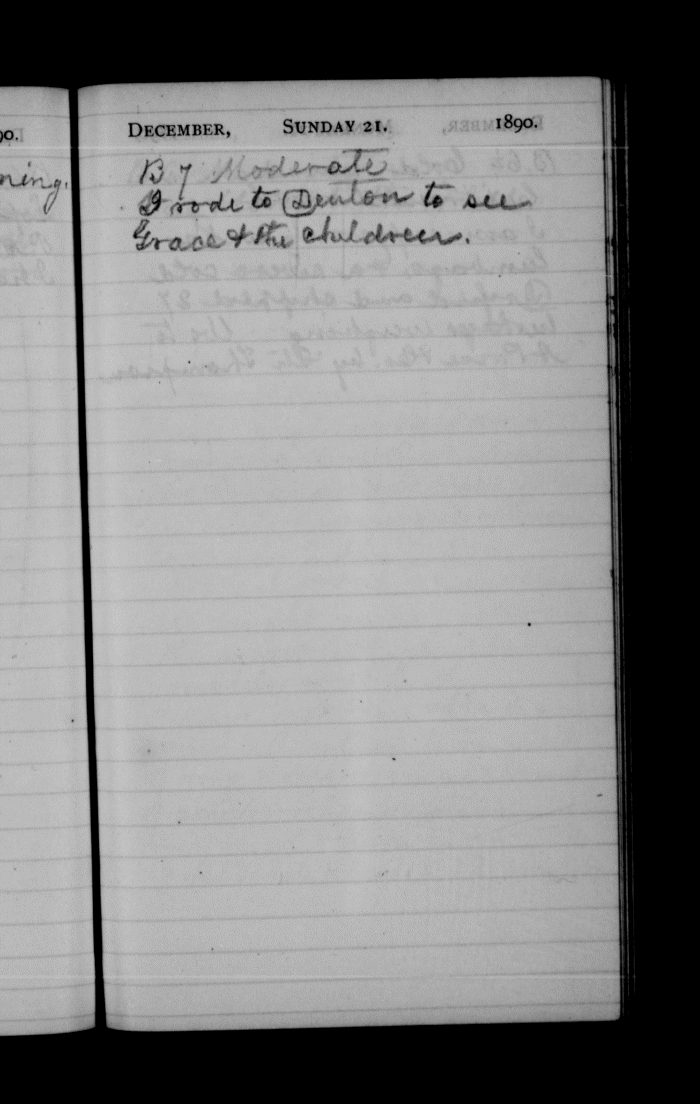 90.
ning.
DECEMBER, SUNDAY 21. 1890.
B 7 Moderate
I rode to Denton to see
Grace & the children.